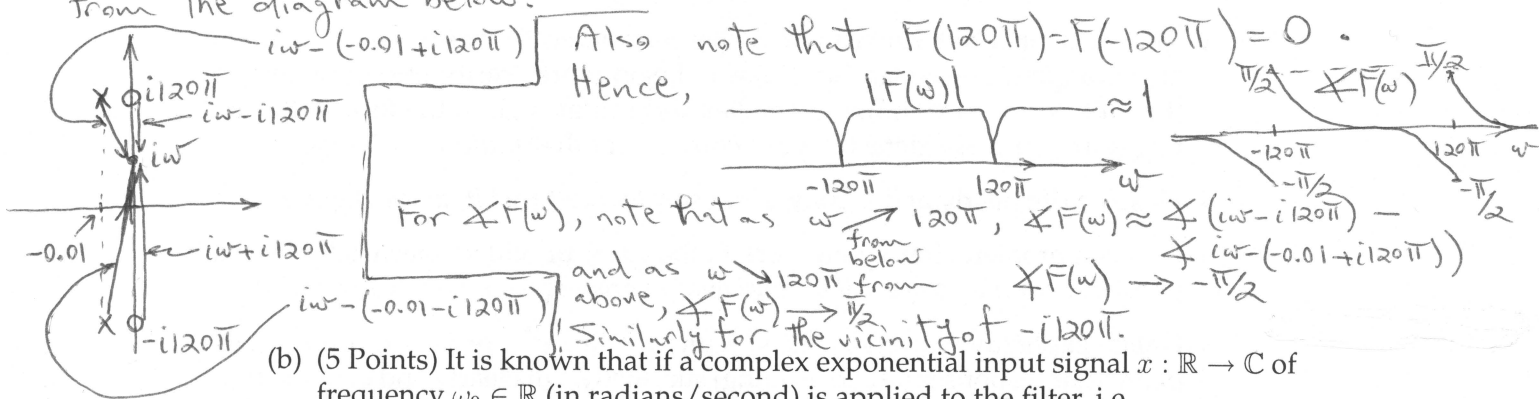 from the diagram below.
iω-(-0.01+i120π)
Also note that F(120π)=F(-120π)=0.
Hence,
i120π
iω-i120π
iω
-0.01
iω+i120π
iω-(-0.01-i120π)
-i120π
|F(ω)|
≈1
-120π
120π
ω
π/2
∡F(ω)
π/2
-120π
120π
ω
-π/2
-π/2
For ∡F(ω), note that as ω ↗ 120π, ∡F(ω) ≈ ∡(iω-i120π) -
from below
∡ iω-(-0.01+i120π))
∡F(ω) → -π/2
and as ω ↘ 120π from
above, ∡F(ω) → π/2
Similarly for the vicinity of -i120π.
(b) (5 Points) It is known that if a complex exponential input signal x : ℝ → ℂ of
frequency ω₀ ∈ ℝ (in radians/second) is applied to the filter, i.e.